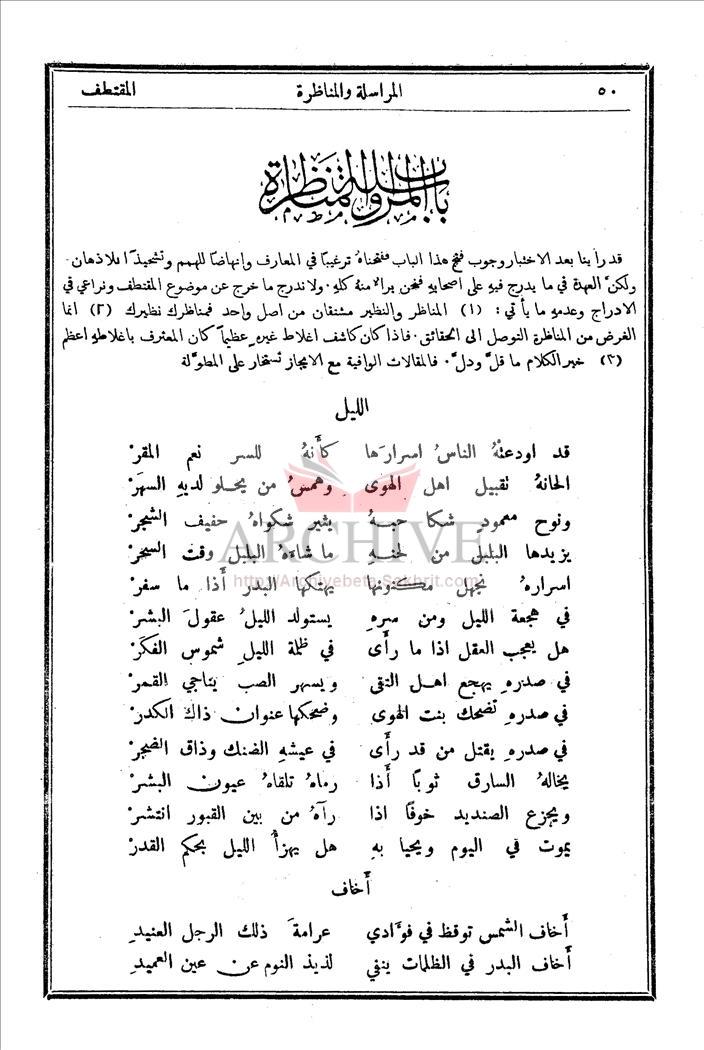 ٥٠ المراسلة والمناظرة المقتطف
باب المراسلة والمناظرة
قد رأينا بعد الاختبار وجوب فتح هذا الباب ففتحناهُ ترغيبًا في المعارف وانهاضًا للهمم وتشحيذًا للاذهان
ولكنَّ العهدة في ما يدرج فيهِ على اصحابهِ فنحن براء منه كلهِ . ولا ندرج ما خرج عن موضوع المقتطف ونراعي في
الادراج وعدمهِ ما يأتي : (١) المناظر والنظير مشتقان من اصل واحد فمناظرك نظيرك (٢) انما
الغرض من المناظرة التوصل الى الحقائق . فاذا كان كاشف اغلاط غيرهِ عظيماً كان المعترف باغلاطهِ اعظم
(٣) خير الكلام ما قلَّ ودلَّ . فالمقالات الوافية مع الايجاز تستخار على المطوَّلة
الليل
قد اودعتْهُ الناسُ اسرارَها كأنهُ للسر نعم المقرْ
الحانهُ تقبيل اهل الهوى وهمسُ من يحلو لديهِ السهَرْ
ونوح معمودٍ شكا حبهُ يثير شكواهُ حفيف الشجرْ
يزيدها البلبل من لحنهِ ما شاءهُ البلبل وقت السحَرْ
اسرارهُ نجهل مكنونها يهتكها البدر أذا ما سفرْ
في هجعة الليل ومن سرهِ يستولد الليلُ عقولَ البشرْ
هل يعجب العقل اذا ما رأى في ظلمة الليلِ شموس الفكَرْ
في صدرهِ يهجع اهل التقى ويسهر الصب يناجي القمرْ
في صدرهِ تضحك بنت الهوى وضحكها عنوان ذاك الكدرْ
في صدرهِ يقتل من قد رأى في عيشهِ الضنك وذاق الضجرْ
يخالهُ السارق ثوبًا أذا رماهُ تلقاهُ عيون البشرْ
ويجزع الصنديد خوفًا اذا رآهُ من بين القبور انتشرْ
يموت في اليوم ويحيا بهِ هل يهزأُ الليل بحكم القدرْ
أخاف
أخاف الشمس توقظ في فؤادي عرامةَ ذلك الرجل العنيدِ
أخاف البدر في الظلمات ينفي لذيذ النوم عن عين العميدِ
ARCHIVE
http://Archivebeta.Sakhrit.com